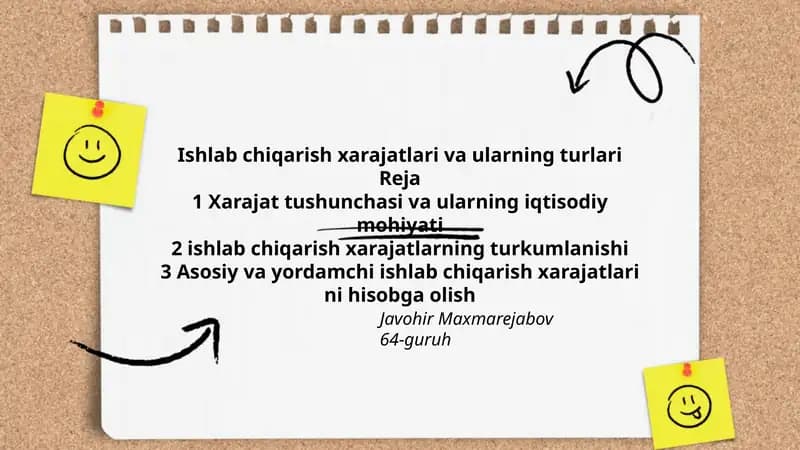 Ishlab chiqarish xarajatlari va ularning turlari
Reja
1 Xarajat tushunchasi va ularning iqtisodiy
mohiyati
2 ishlab chiqarish xarajatlarning turkumlanishi
3 Asosiy va yordamchi ishlab chiqarish xarajatlari
ni hisobga olish
Javohir Maxmarejabov
64-guruh